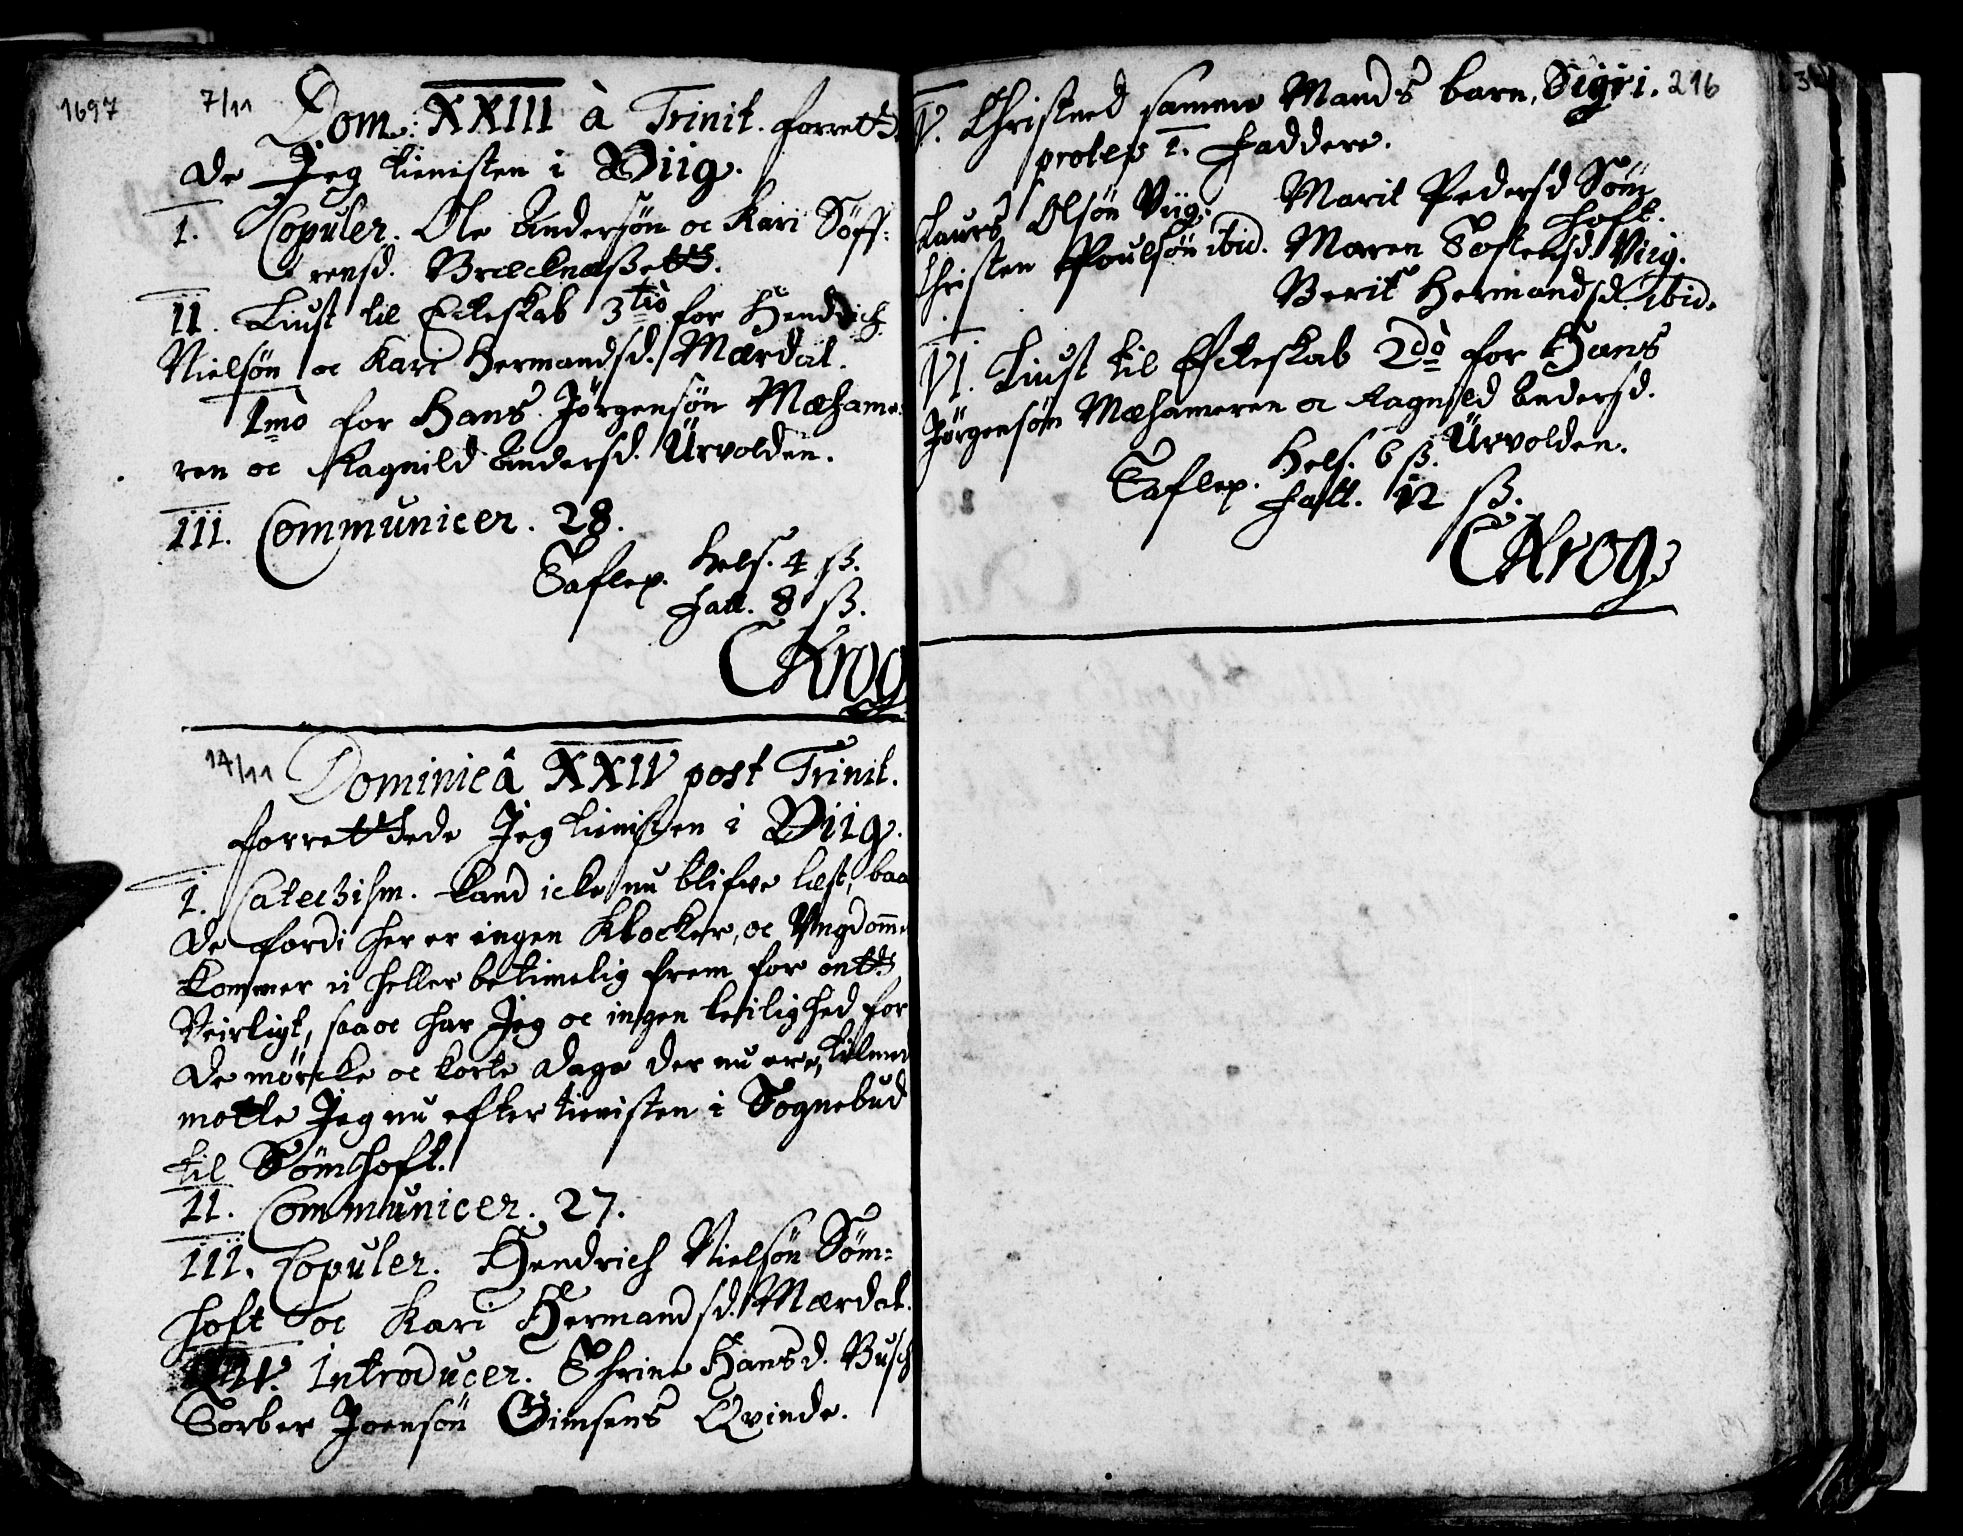 1697
7/11
Dom. XXIII à Trinit. forrett=
de Jeg tienisten i Viig.
I. Copuler. Ole Andersøn oc Kari Søff=
rensd. Bræcknæßett.
II. Liust til Ecteskab 3tiò for Hendrich
Nielsøn oc Kari Hermandsd. Mærdal.
1mò for Hans Jørgensøn Mæhame=
ren oc Ragnild Andersd. Urvolden.
III. Communicer. 28.
Taflep. Hels. 4 ß.
Fatt. 8 ß.
CKrog
14/11
Dominicâ XXIV post Trinit.
forrettede Jeg tienisten i Viig.
I. Catechism. kand icke nu blifve læst, baa
de fordi her er ingen Klocker, oc Ungdomme
kommer ei heller betimelig frem for ontt
Veirligt, saa oc har Jeg oc ingen leilighed for
de mørcke oc korte Dage der nu ere, tilmed
motte Jeg nu efter tienisten i Sognebud
til Sømhoft.
II. Communicer. 27.
III. Copuler. Hendrich Nielsøn Søm=
hoft oc Kari Hermandsd. Mærdal.
IV. Introducer. Thrine Hansd. Busch
Torber Joensøn Gimsens Qvinde.
216
V. Christned samme Mands barn, Sigri.
protep I. Faddere.
Laurs Olsøn Viig. Marit Pedersd Søm
hoft.
Christen Poulsøn ibid. Maren Toftensd. Viig.
Berit Hermandsd. ibid.
VI. Liust til Ecteskab 2dò for Hans
Jørgensøn Mæhameren oc Ragnild Andersd.
Urvolden.
Taflep. Hels. 6 ß.
Fatt. 12 ß.
CKrog